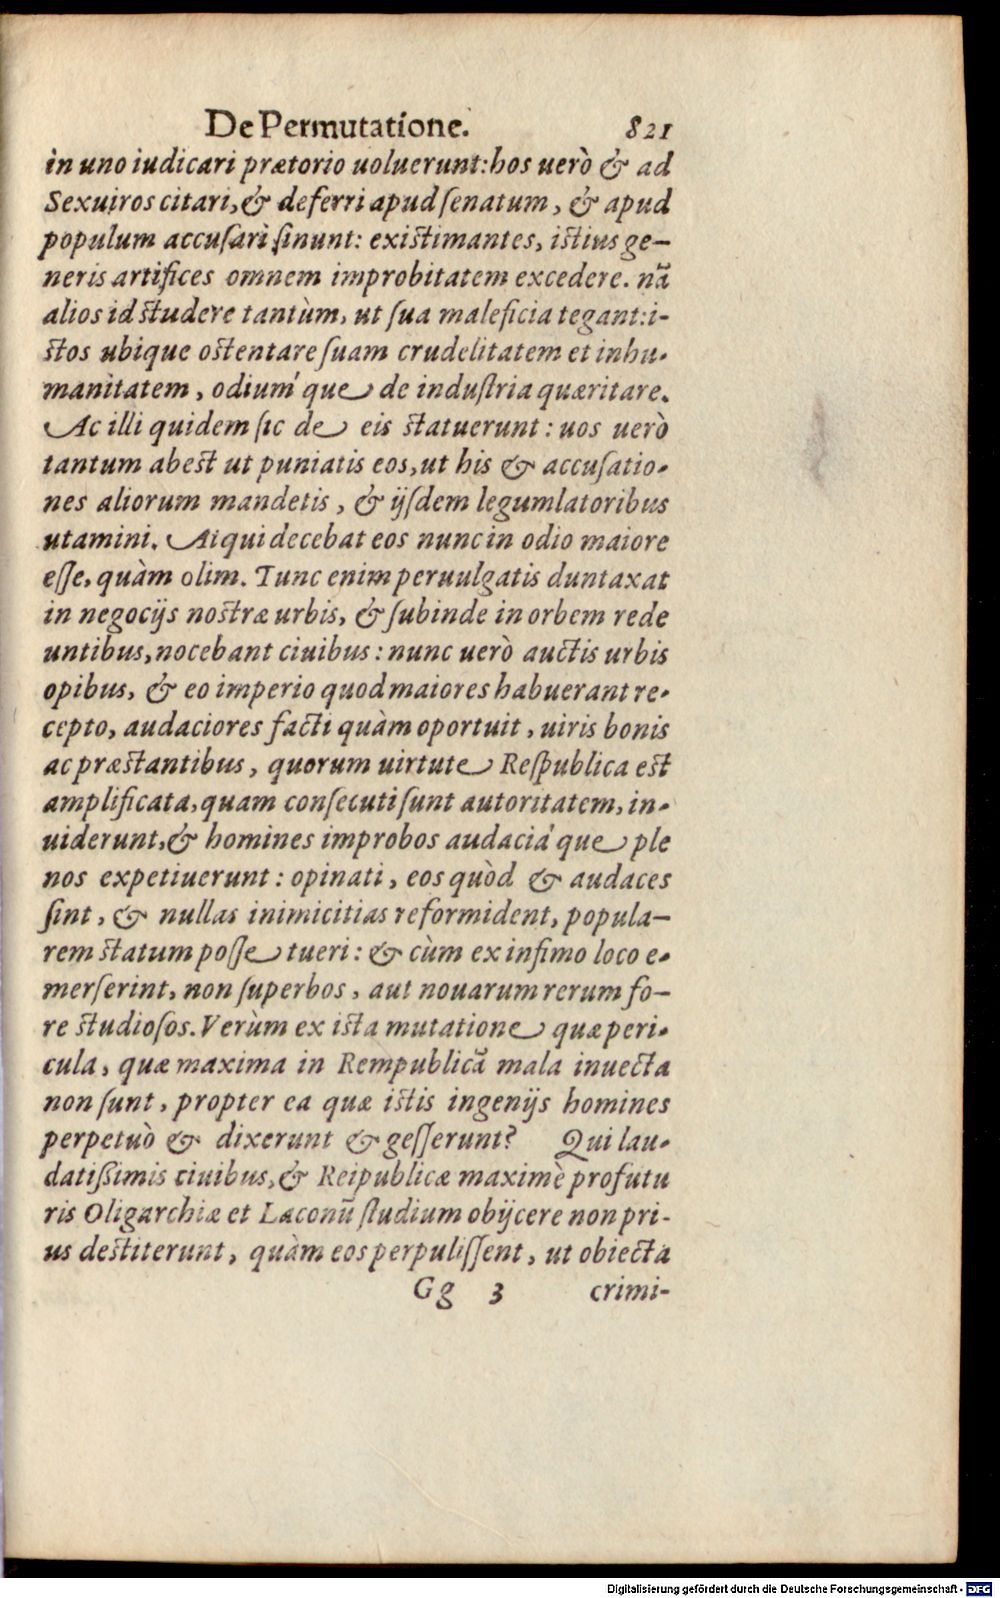 De Permutatione. 821
in uno iudicari prætorio uoluerunt: hos uerò & ad
Sexuiros citari, & deferri apud ſenatum, & apud
populum accuſari ſinunt: existimantes, istius ge-
neris artifices omnem improbitatem excedere. nā
alios id studere tantùm, ut ſua maleficia tegant: i-
stos ubique ostentare ſuam crudelitatem et inhu-
manitatem, odium´que de induſtria quæritare.
Ac illi quidem ſic de eis statuerunt: uos uerò
tantum abest ut puniatis eos, ut his & accuſatio-
nes aliorum mandetis, & ijſdem legumlatoribus
utamini. Atqui decebat eos nunc in odio maiore
eſſe, quàm olim. Tunc enim peruulgatis duntaxat
in negocijs nostræ urbis, & ſubinde in orbem rede
untibus, nocebant ciuibus: nunc uerò auctis urbis
opibus, & eo imperio quod maiores habuerant re-
cepto, audaciores facti quàm oportuit, uiris bonis
ac præstantibus, quorum uirtute Reſpublica est
amplificata, quam conſecuti ſunt autoritatem, in-
uiderunt, & homines improbos audacia´que ple
nos expetiuerunt: opinati, eos quòd & audaces
ſint, & nullas inimicitias reformident, popula-
rem statum poſſe tueri: & cùm ex infimo loco e-
merſerint, non ſuperbos, aut nouarum rerum fo-
re studioſos. Verùm ex ista mutatione quæ peri-
cula, quæ maxima in Rempublicā mala inuecta
non ſunt, propter ea quæ istis ingenijs homines
perpetuò & dixerunt & geſſerunt? Qui lau-
datiſsimis ciuibus, & Reipublicæ maximè profutu
ris Oligarchiæ et Laconū ſtudium obijcere non pri-
us destiterunt, quàm eos perpuliſſent, ut obiecta
Gg 3 crimi-
Digitalisierung gefördert durch die Deutsche Forschungsgemeinschaft - DFG